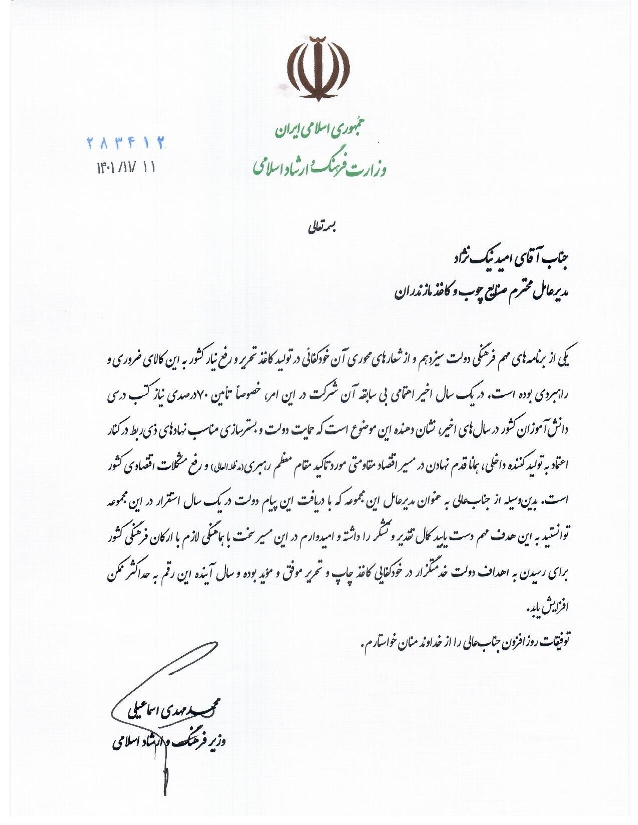 جمهوری اسلامی ایران
وزارت فرهنگ و ارشاد اسلامی
۲۸۳۴۱۲
۱۴۰۱/۱۱/۱۱
بسمه تعالی
جناب آقای امید نیک نژاد
مدیرعامل محترم صنایع چوب و کاغذ مازندران
یکی از برنامه‌های مهم فرهنگی دولت سیزدهم و از شعارهای محوری آن خودکفائی در تولید کاغذ تحریر و رفع نیاز کشور به این کالای ضروری و
راهبردی بوده است. در یک سال اخیر اهتمامی بی سابقه آن شرکت در این امر، خصوصاً تأمین ۷۰درصدی نیاز کتب درسی
دانش‌آموزان کشور در سال‌های اخیر، نشان دهنده این موضوع است که حمایت دولت و بسترسازی مناسب نهادهای ذی‌ربط در کنار
اعتماد به تولید کننده داخلی، همانا قدم نهادن در مسیر اقتصاد مقاومتی مورد تاکید مقام معظم رهبری(مدظله العالی) و رفع مشکلات اقتصادی کشور
است. بدین‌وسیله از جناب‌عالی به عنوان مدیرعامل این مجموعه که با دریافت این پیام دولت در یک سال استقرار در این مجموعه
توانستید به این هدف مهم دست یابید کمال تقدیر و تشکر را داشته و امیدوارم در این مسیر سخت با هماهنگی لازم با ارکان فرهنگی کشور
برای رسیدن به اهداف دولت خدمتگزار در خودکفایی کاغذ چاپ و تحریر موفق و مؤید بوده و سال آینده این رقم به حداکثر ممکن
افزایش یابد.
توفیقات روزافزون جناب‌عالی را از خداوند منان خواستارم.
محمد مهدی اسماعیلی
وزیر فرهنگ و ارشاد اسلامی